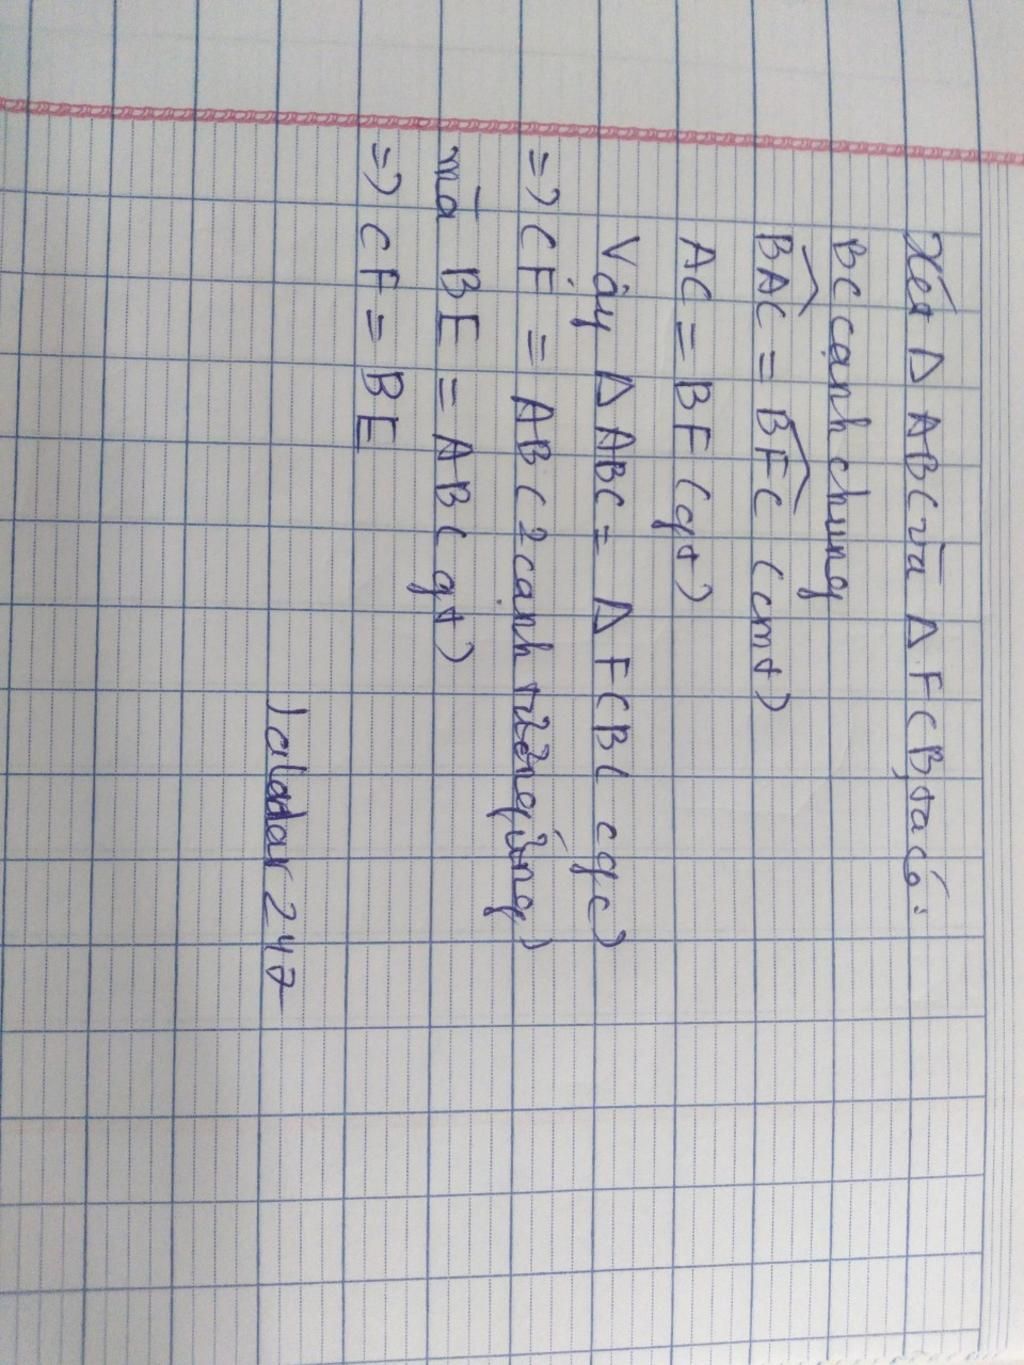 Xét Δ ABC và Δ FCB, ta có:
BC cạnh chung
BAC = BFC (cmt)
AC = BF (gt)
Vậy Δ ABC = Δ FCB ( cgc)
=) CF = AB ( 2 cạnh tương ứng)
mà BE = AB ( gt)
=) CF = BE
Jaladar 247